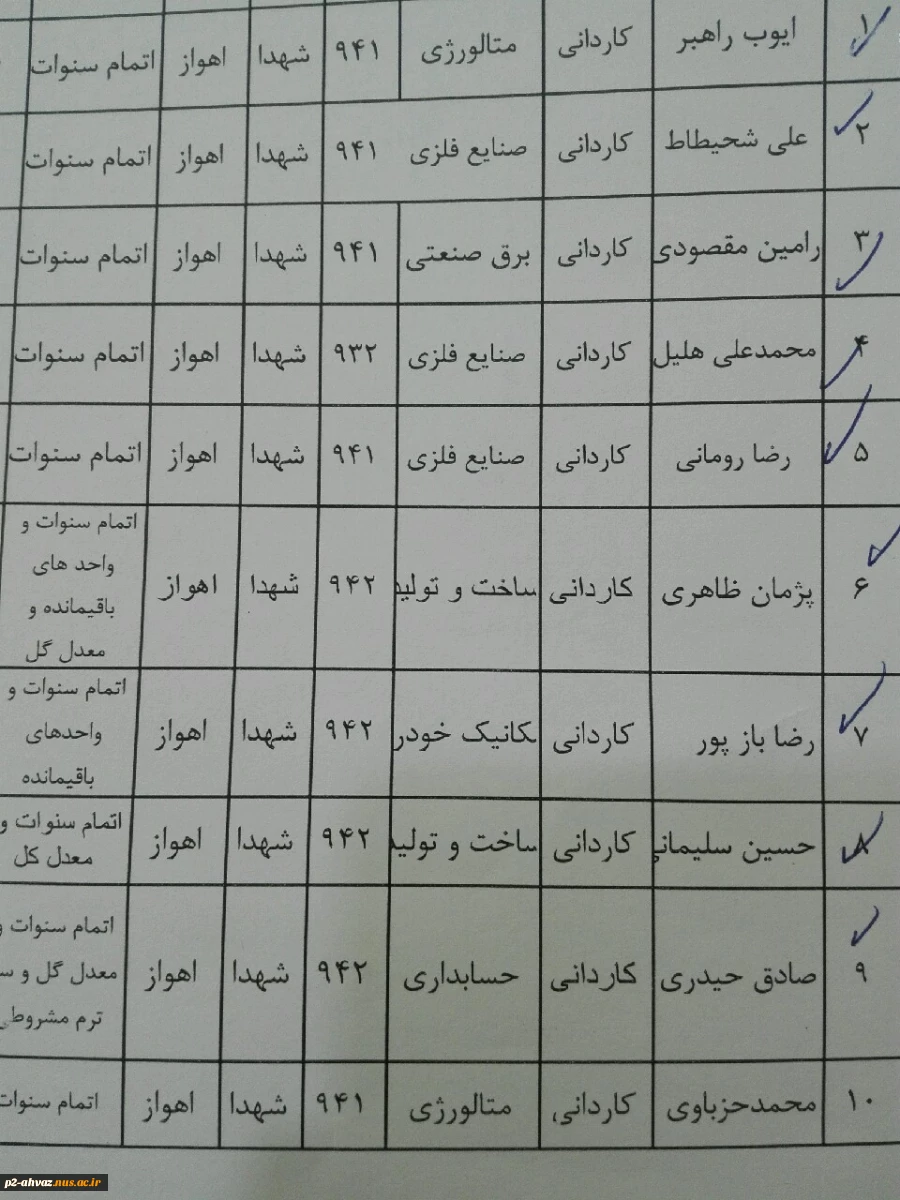 ۱ ایوب راهبر کاردانی متالورژی ۹۴۱ شهدا اهواز اتمام سنوات
۲ علی شحیطاط کاردانی صنایع فلزی ۹۴۱ شهدا اهواز اتمام سنوات
۳ رامین مقصودی کاردانی برق صنعتی ۹۴۱ شهدا اهواز اتمام سنوات
۴ محمدعلی هلیل کاردانی صنایع فلزی ۹۳۲ شهدا اهواز اتمام سنوات
۵ رضا رومانی کاردانی صنایع فلزی ۹۴۱ شهدا اهواز اتمام سنوات
۶ پژمان ظاهری کاردانی ساخت و تولید ۹۴۲ شهدا اهواز اتمام سنوات و
واحد های
باقیمانده و
معدل گل
۷ رضا باز پور کاردانی مکانیک خودر ۹۴۲ شهدا اهواز اتمام سنوات و
واحدهای
باقیمانده
۸ حسین سلیمانی کاردانی ساخت و تولید ۹۴۲ شهدا اهواز اتمام سنوات و
معدل کل
۹ صادق حیدری کاردانی حسابداری ۹۴۲ شهدا اهواز اتمام سنوات و
معدل گل و سه
ترم مشروطی
۱۰ محمدحزباوی کاردانی متالورژی ۹۴۱ شهدا اهواز اتمام سنوات
p2-ahvaz.nus.ac.ir